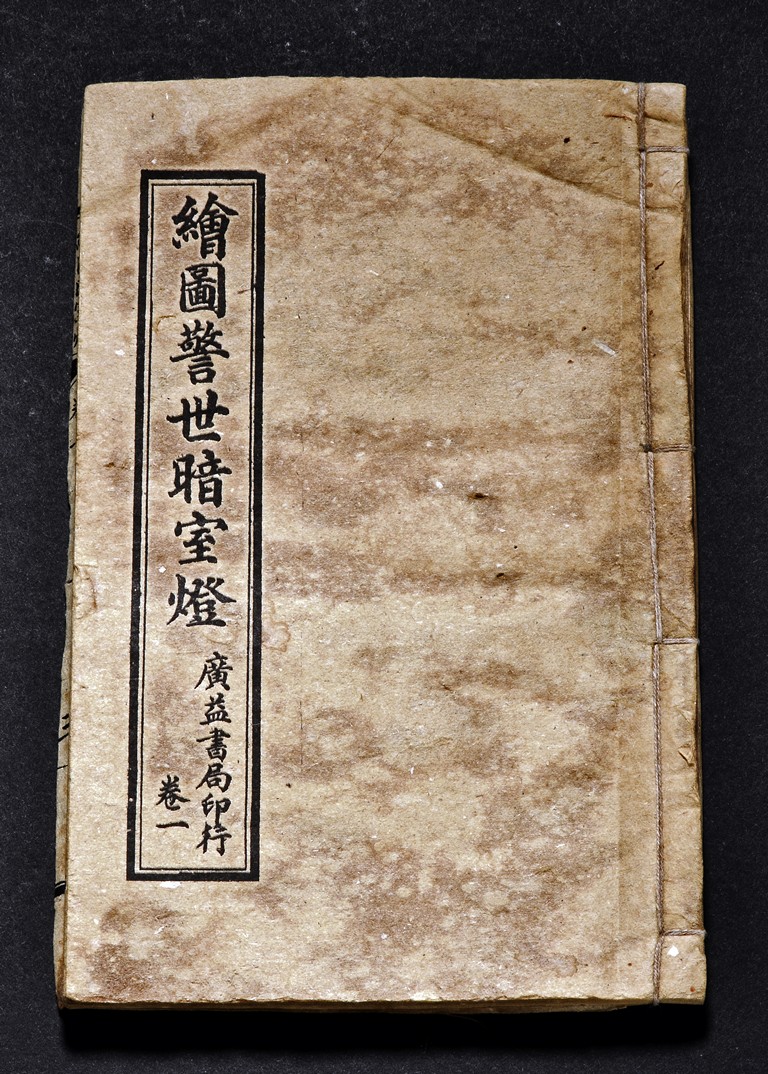 繪圖警世暗室燈
廣益書局印行
卷一